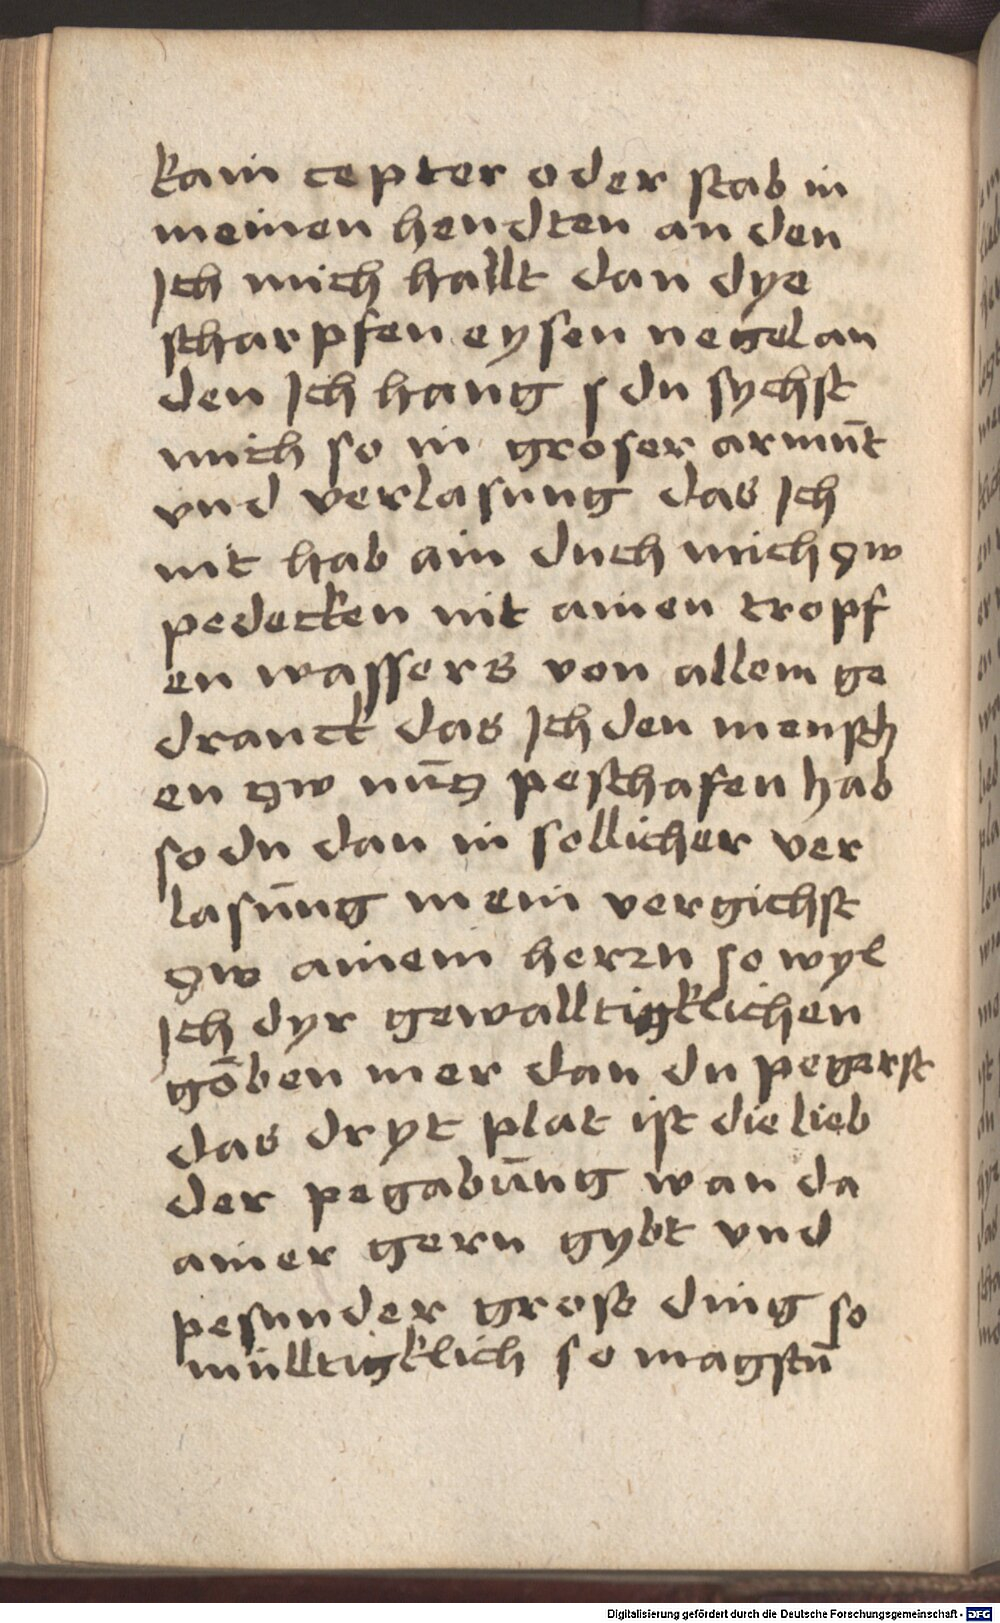 kain cepter oder stab in
meinen hendten an den
Jch mich hallt dan dye
scharpfen eysen negel an
den Jch hang s du sychst
mich so in groser armūt
vnd verlasung das Jch
nit hab ain duch mich zw
pedecken nit ainen tropf
en wassers von allem ge
dranck das Jch den mensch
en zw nūcz peschafen hab
so du dan in sollicher ver
lasūng mein vergichst
zw ainem herrn so wyl
Jch dyr gewalltigklichen
gōben mer dan du pegerst
das dryt plat ist die lieb
der pegabūng wan da
ainer gern gybt vnd
pesunder grose ding so
mülltigklich so magstū
Digitalisierung gefördert durch die Deutsche Forschungsgemeinschaft - DFG